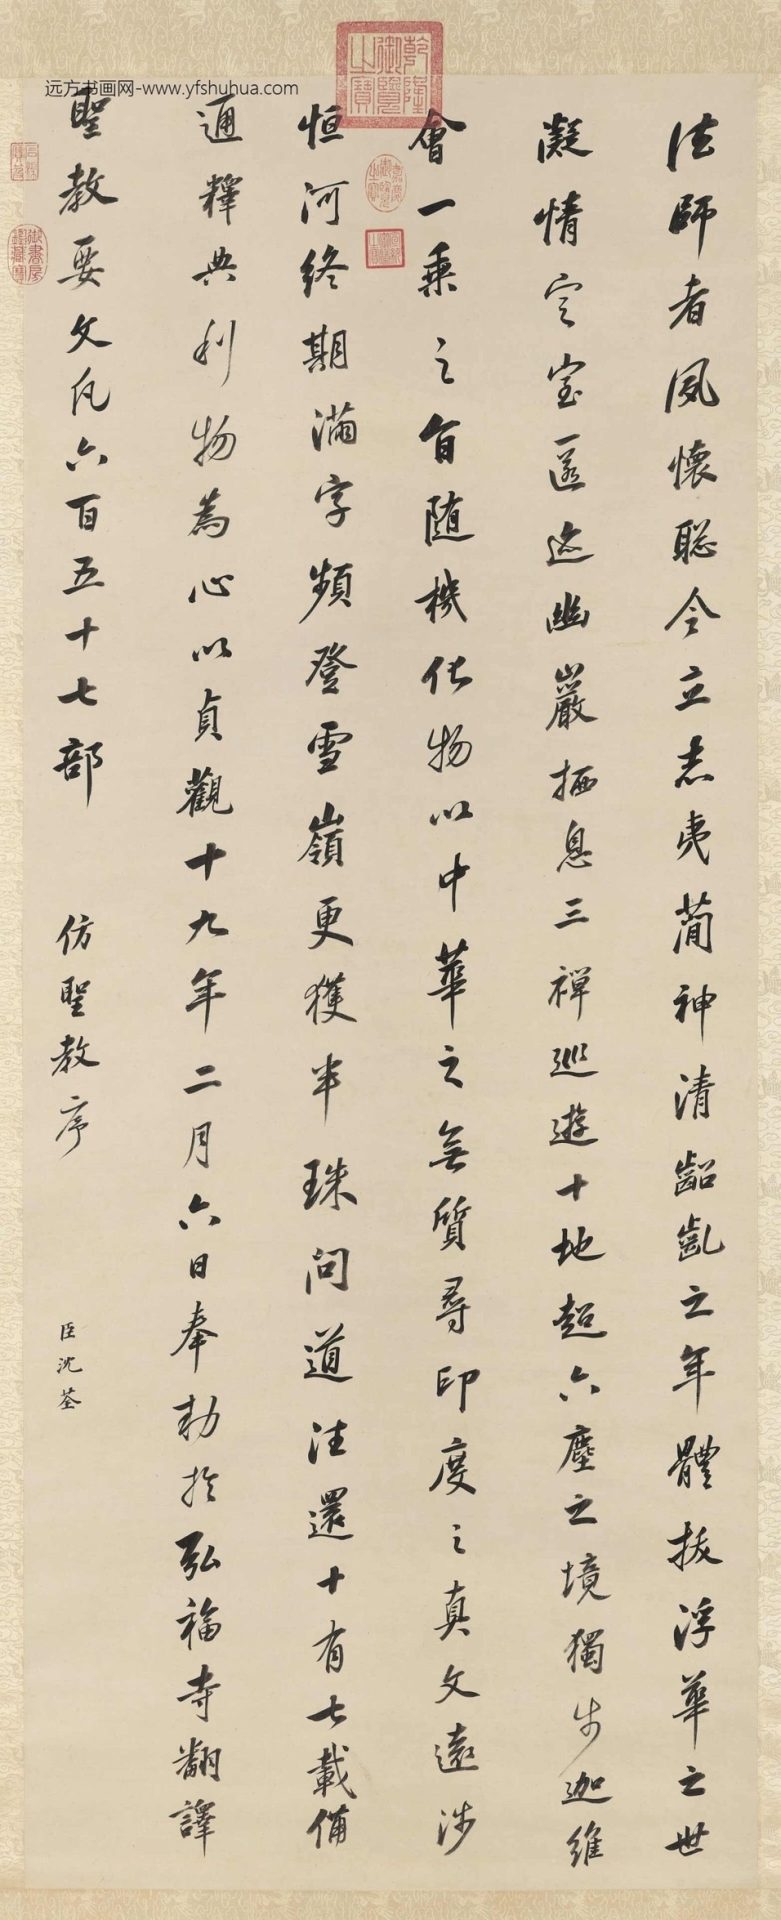 远方书画网-www.yfshuhua.com
乾隆御覽之寶
法師者夙懷聡令立志夷蕳神清齠齓之年體拔浮華之世
凝情定室匿迹幽巖栖息三禅巡遊十地超六塵之境獨步迦維
會一乗之旨随機化物以中華之無質尋印度之真文遠涉
恒河終期滿字頻登雪嶺更獲半珠問道往還十有七載俻
通釋典利物為心以貞觀十九年二月六日奉勅扵弘福寺翻譯
聖教要文凡六百五十七部 仿聖教序 臣沈荃